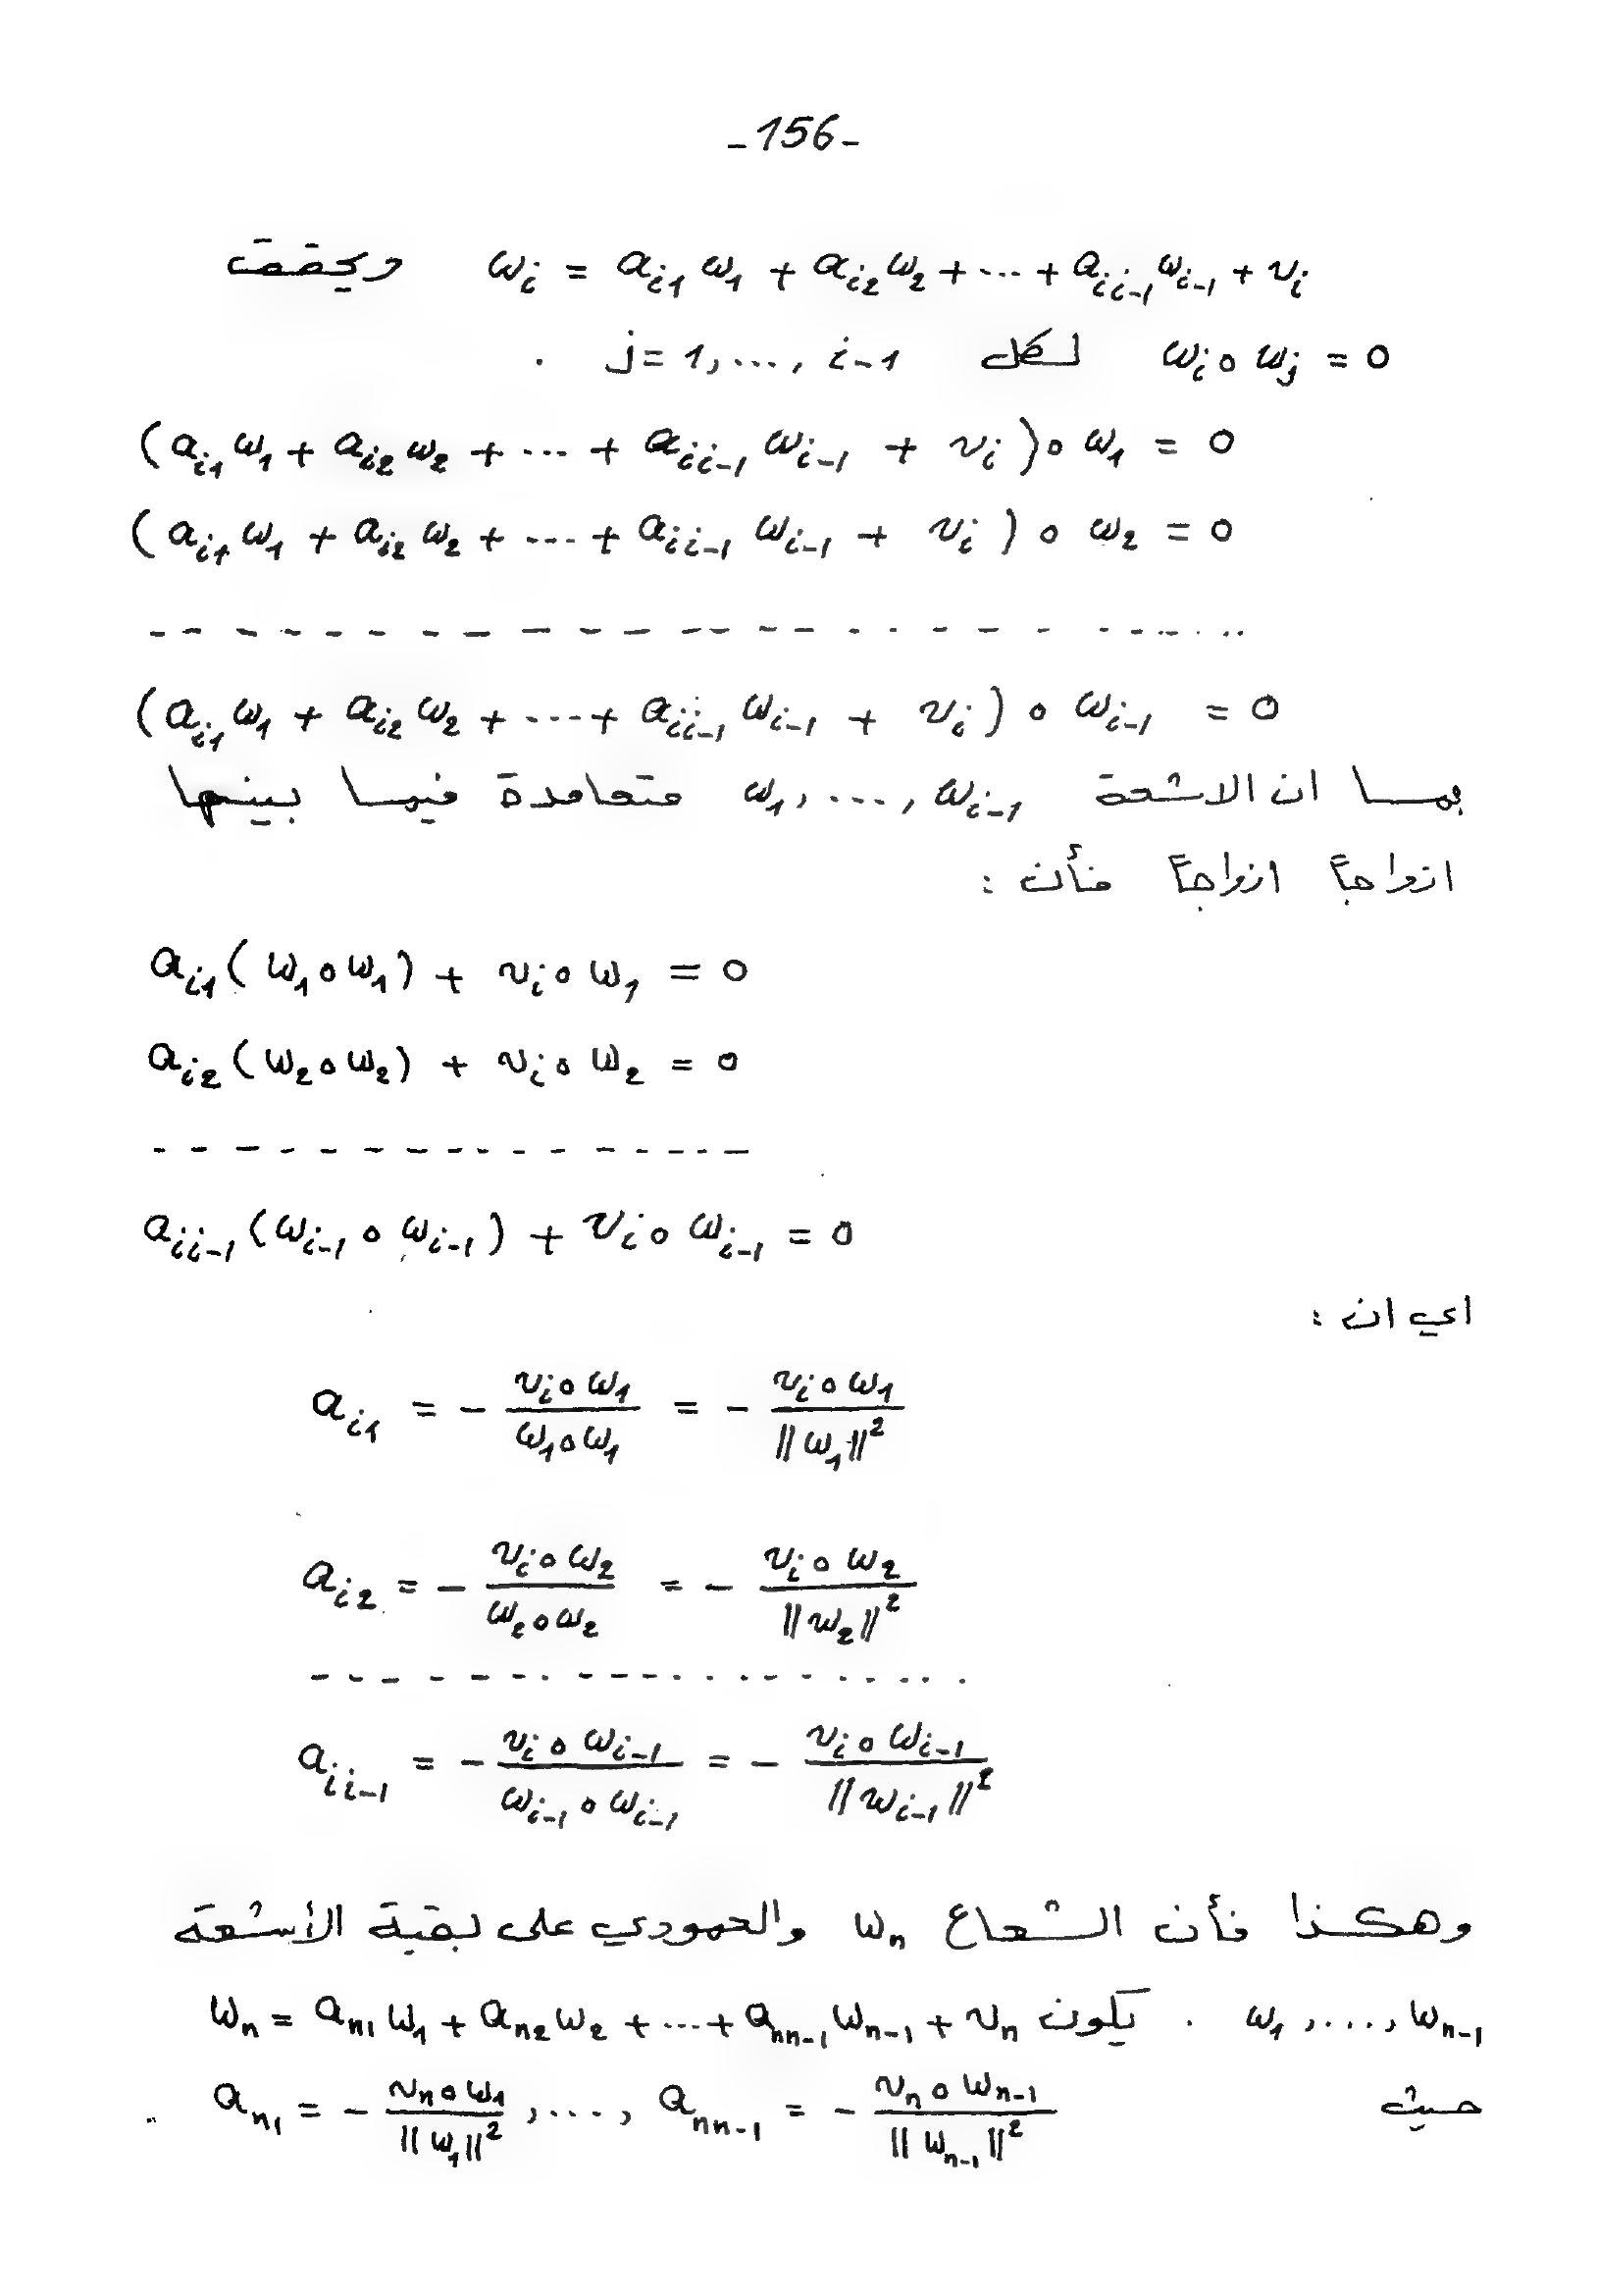 -156-
ωi = ai1 ω1 + ai2 ω2 + ... + aii-1 ωi-1 + vi ويحقق
ωi o ωj = 0 لكل j = 1, ..., i-1 .
(ai1 ω1 + ai2 ω2 + ... + aii-1 ωi-1 + vi) o ω1 = 0
(ai1 ω1 + ai2 ω2 + ... + aii-1 ωi-1 + vi) o ω2 = 0
- - - - - - - - - - - - - - - - - - - -
(ai1 ω1 + ai2 ω2 + ... + aii-1 ωi-1 + vi) o ωi-1 = 0
بمـا ان الاشعة ω1, ..., ωi-1 متعامدة فيمـا بينهـا
ازواجاً ازواجاً فأن :
ai1 (ω1 o ω1) + vi o ω1 = 0
ai2 (ω2 o ω2) + vi o ω2 = 0
- - - - - - - - - - - - - -
aii-1 (ωi-1 o ωi-1) + vi o ωi-1 = 0
اي ان :
ai1 = - (vi o ω1)/(ω1 o ω1) = - (vi o ω1)/||ω1||²
ai2 = - (vi o ω2)/(ω2 o ω2) = - (vi o ω2)/||ω2||²
- - - - - - - - - - - - - - - -
aii-1 = - (vi o ωi-1)/(ωi-1 o ωi-1) = - (vi o ωi-1)/||ωi-1||²
وهكـذا فأن الشـعاع ωn والعمودي على بقية الأشعة
ω1, ..., ωn-1 . يكون ωn = an1 ω1 + an2 ω2 + ... + ann-1 ωn-1 + vn
حيث an1 = - (vn o ω1)/||ω1||² , ..., ann-1 = - (vn o ωn-1)/||ωn-1||²